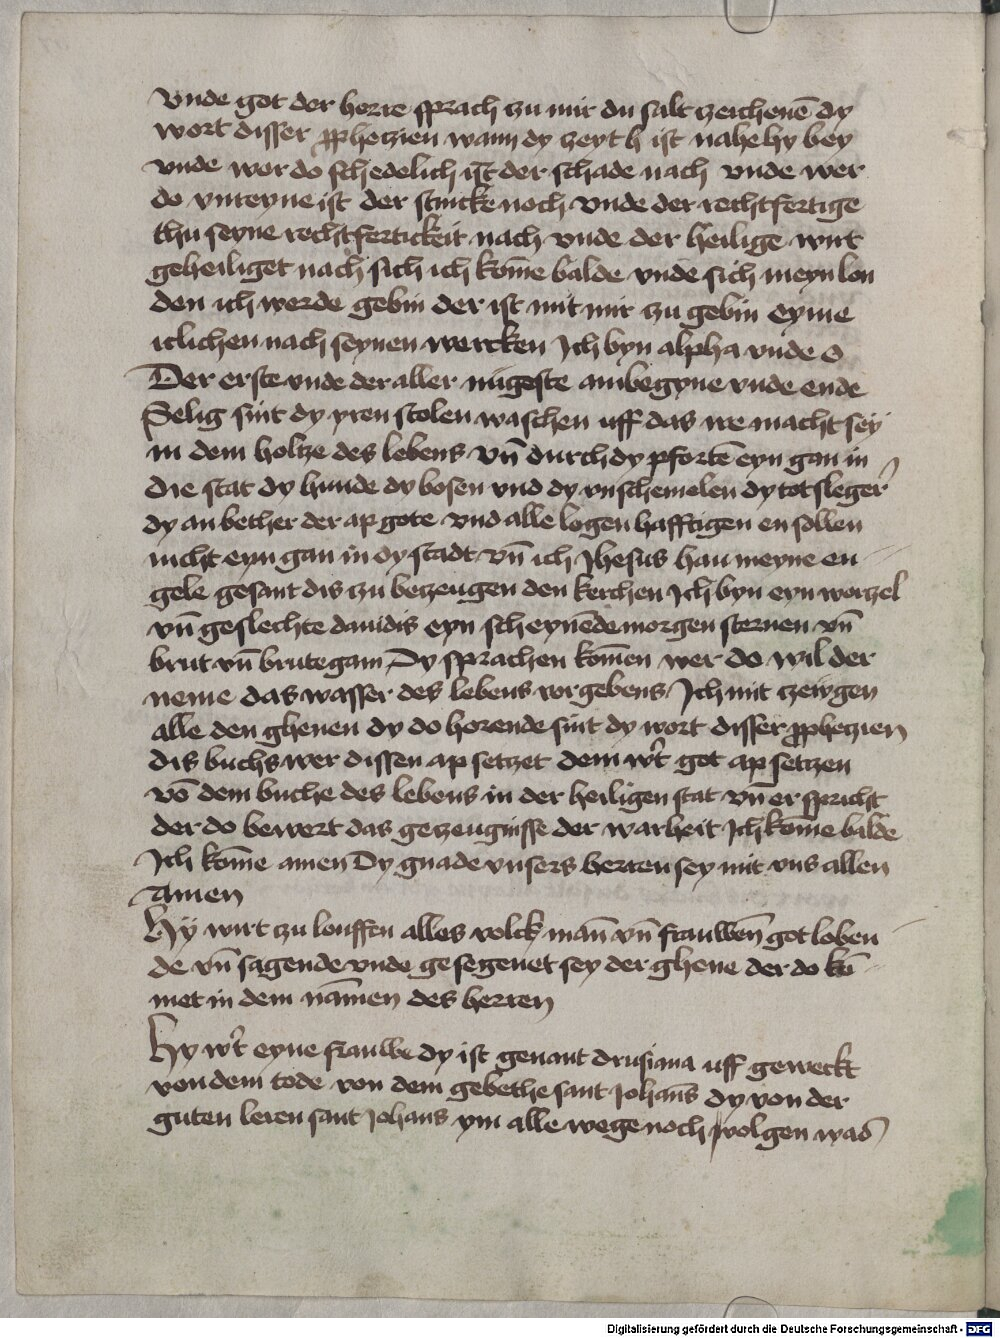 vnde got der herre sprach zu mir du salt zceichenē dy
wort disser ꝓphetzien wann dy zeyt h ist nahe hy bey
vnde wer do schedelich ist der schade nach vnde wer
do vnreyne ist der stincke noch vnde der rechtfertige
thu seyne rechtfertickeit nach vnde der heilige wirt
geheiliget nach sich ich kōme balde vnde sich meyn lon
den ich werde gebin der ist mit mir zu gebin eyme
itlichen nach seynen wercken Ich byn alpha vnde o
Der erste vnde der aller nugeste ambegyne vnde ende
Selig sint dy yren stolen waschen uff das ire macht sey
in dem holtze des lebens vn̄ durch dy pfortē eyn gan in
die stat dy hunde dy bosen vnd dy vnschemelen dy totsleger
dy an bether der ap gote vnd alle logen hafftigen en sollen
nicht eyn gan in dy stadt vn̄ ich Jhesus han meyne en
gele gesant dis zu betzeugen den kerchen Ich byn eyn wortzel
vn̄ geslechte dauidis eyn scheynēde morgen sternen vn̄
brut vn̄ brutegam Dy sprachen kōmen wer do wil der
neme das wasser des lebens vorgebens Ich mit tzewgen
alle den ghenen dy do horende sint dy wort disser ꝓphetzien
dis buchs wer dissen ap setzet dem wͬt got ap setzen
vō dem buche des lebens in der heiligen stat vn̄ er spricht
der do bewert das getzeugnisse der warheit Ich kōme balde
Ich kōme amen Dy gnade vnsers herren sey mit vns allen
Amen
Hy wirt zu louffen alles volck mān vn̄ frauwēn got loben
de vn̄ sagende vnde gesegenet sey der ghene der do kō
met in dem nāmen des herren
Hy wͬt eyne frauwe dy ist genant drusiana uff geweckt
von dem tode von dem gebethe sant Johan̄s dy von der
guten leren sant Johans ym alle wege noch volgen was
Digitalisierung gefördert durch die Deutsche Forschungsgemeinschaft - DFG